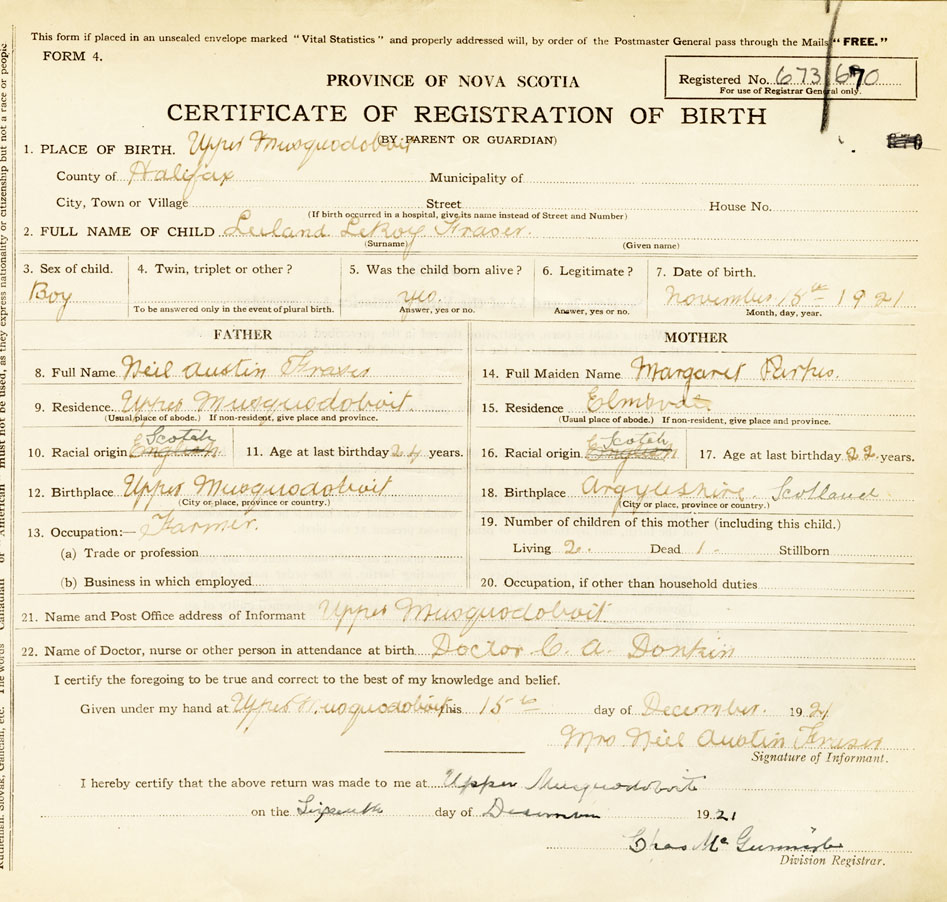 This form if placed in an unsealed envelope marked "Vital Statistics" and properly addressed will, by order of the Postmaster General pass through the Mails "FREE."
FORM 4.
Registered No. 673 670
For use of Registrar General only.
PROVINCE OF NOVA SCOTIA
CERTIFICATE OF REGISTRATION OF BIRTH
(BY PARENT OR GUARDIAN)
1. PLACE OF BIRTH. Upper Musquodoboit
County of Halifax Municipality of
City, Town or Village Street House No.
(If birth occurred in a hospital, give its name instead of Street and Number)
2. FULL NAME OF CHILD Leiland LeRoy Fraser
(Surname) (Given name)
3. Sex of child. 4. Twin, triplet or other? 5. Was the child born alive? 6. Legitimate? 7. Date of birth.
Boy yes. November 15th 1921
To be answered only in the event of plural birth. Answer, yes or no. Answer, yes or no. Month, day, year.
FATHER MOTHER
8. Full Name Neil Austin Fraser 14. Full Maiden Name Margaret
9. Residence. Upper Musquodoboit. 15. Residence
(Usual place of abode.) If non-resident, give place and province. (Usual place of abode.) If non-resident, give place and province.
10. Racial origin English Scotch 11. Age at last birthday 24 years. 16. Racial origin English Scotch 17. Age at last birthday 22 years.
12. Birthplace Upper Musquodoboit 18. Birthplace Argyleshire Scotland
(City or place, province or country.) (City or place, province or country.)
13. Occupation:— Farmer. 19. Number of children of this mother (including this child.)
(a) Trade or profession Living 2. Dead 1. Stillborn
(b) Business in which employed 20. Occupation, if other than household duties
21. Name and Post Office address of Informant Upper Musquodoboit
22. Name of Doctor, nurse or other person in attendance at birth Doctor C. A. Donkin
I certify the foregoing to be true and correct to the best of my knowledge and belief.
Given under my hand at Upper Musquodoboit this 15th day of December. 1921
Mrs Neil Austin Fraser
Signature of Informant.
I hereby certify that the above return was made to me at Upper Musquodoboit
on the day of December 1921
Chas Mc
Division Registrar.
must not be used, as they express nationality or citizenship but not a race or people
Ruthenian, Slovak, Galician, etc. The words "Canadian" or "American"